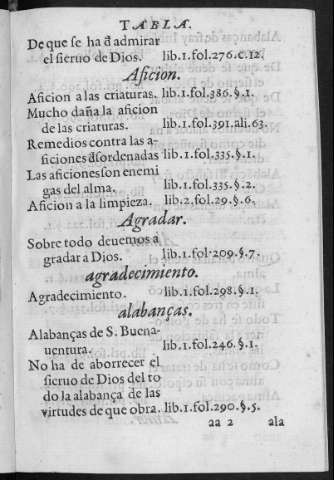 TABLA.
De que se ha d̃ admirar
el sieruo de Dios. lib.1.fol.276.c.12.
Aficion.
Aficion a las criaturas. lib.1.fol.386.§.1.
Mucho daña la aficion
de las criaturas. lib.1.fol.391.ali.63.
Remedios contra las a-
ficiones dsordenadas lib.1.fol.335.§.1.
Las aficiones son enemi
gas del alma. lib.1.fol.335.§.2.
Aficion a la limpieza. lib.2.fol.29.§.6.
Agradar.
Sobre todo deuemos a
gradar a Dios. lib.1.fol.209.§.7.
agradecimiento.
Agradecimiento. lib.1.fol.298.§.1.
alabanças.
Alabanças de S. Buena-
uentura. lib.1.fol.246.§.1.
No ha de aborrecer el
sieruo de Dios del to
do la alabança de las
virtudes de que obra. lib.1.fol.290.§.5.
aa 2 ala